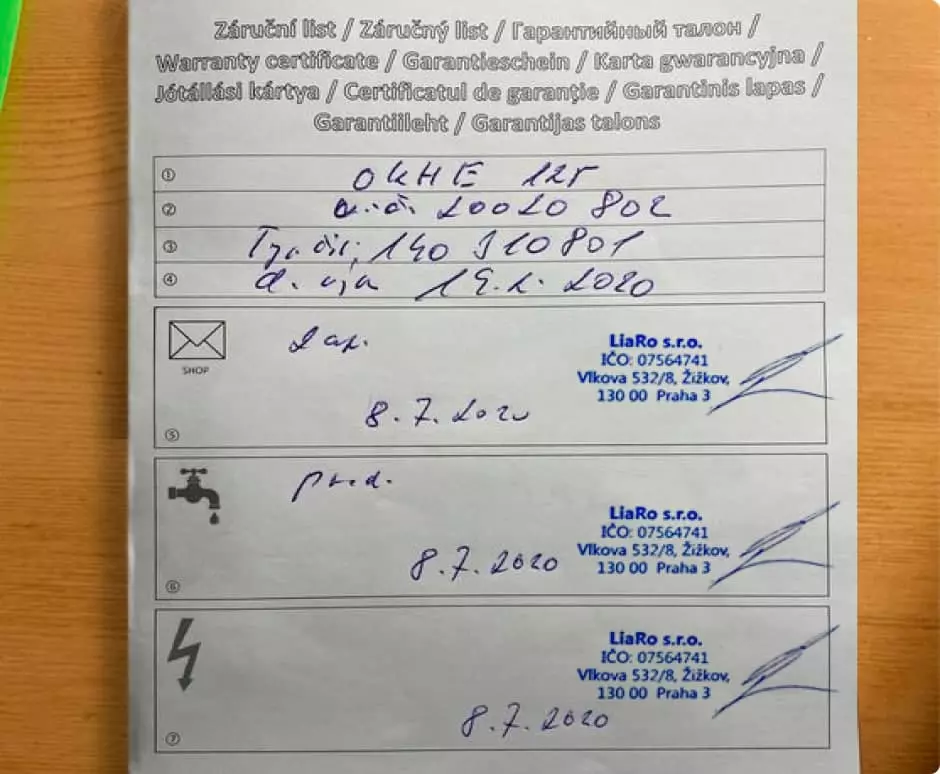 Záruční list / Záručný list / Гарантийный талон /
Warranty certificate / Garantieschein / Karta gwarancyjna /
Jótállási kártya / Certificatul de garanţie / Garantinis lapas /
Garantiileht / Garantijas talons
① OKHE 125
② v.č. 20020 802
③ Typ. čís. 140 310801
④ d. 2020
LiaRo s.r.o.
IČO: 07564741
Vlkova 532/8, Žižkov,
130 00 Praha 3
SHOP
8.7.2020
⑤
LiaRo s.r.o.
IČO: 07564741
Vlkova 532/8, Žižkov,
130 00 Praha 3
8.7.2020
⑥
LiaRo s.r.o.
IČO: 07564741
Vlkova 532/8, Žižkov,
130 00 Praha 3
8.7.2020
⑦